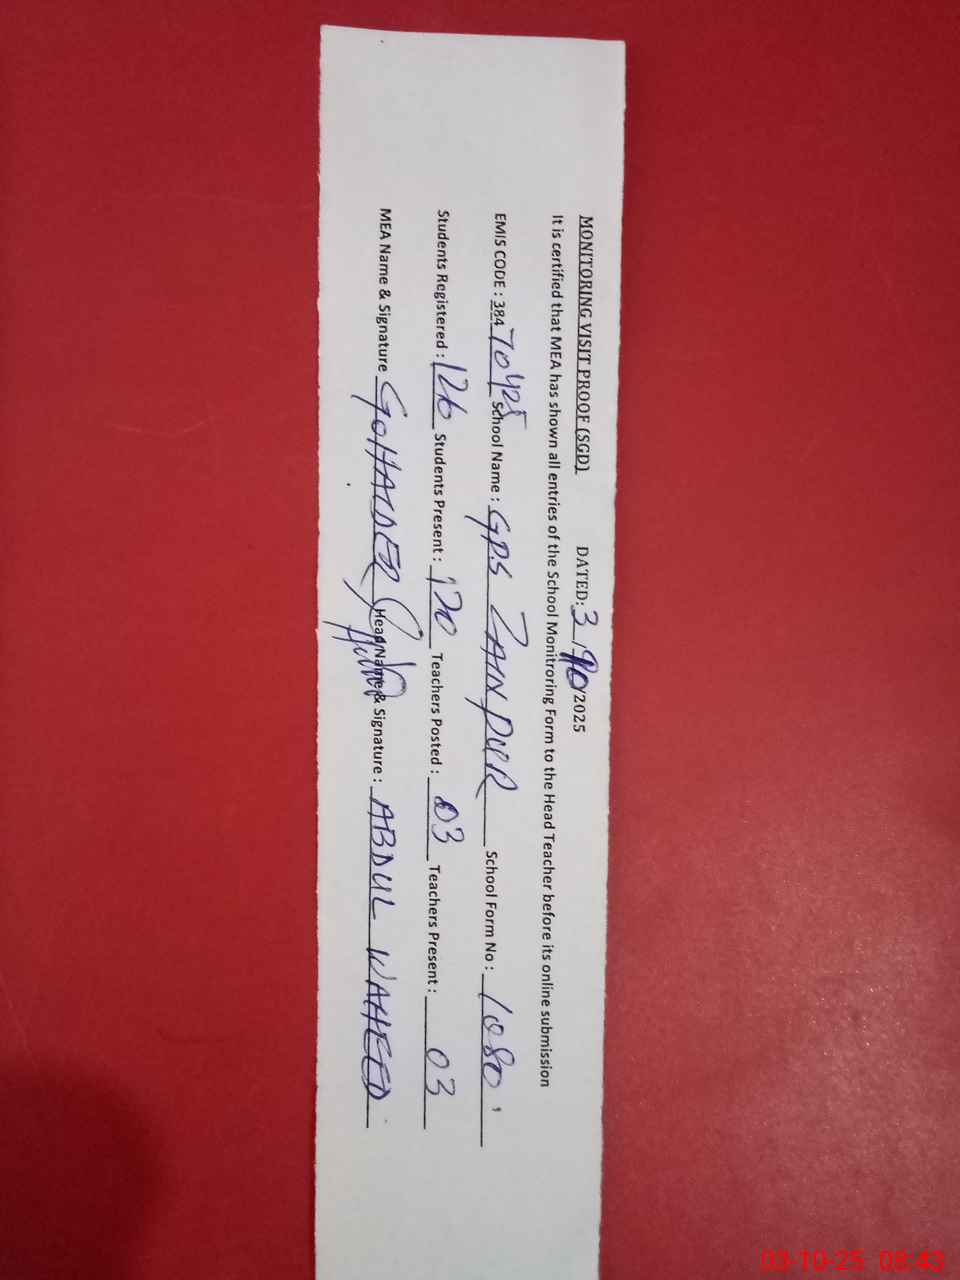 MONITORING VISIT PROOF (SGD) DATED: 3/10/2025
It is certified that MEA has shown all entries of the School Monitroring Form to the Head Teacher before its online submission
EMIS CODE : 38470425 School Name : GPS ZAINPUR School Form No : 1080
Students Registered : 126 Students Present : 120 Teachers Posted : 03 Teachers Present : 03
MEA Name & Signature Head Name & Signature : ABDUL WAHEED
03-10-25 08:43